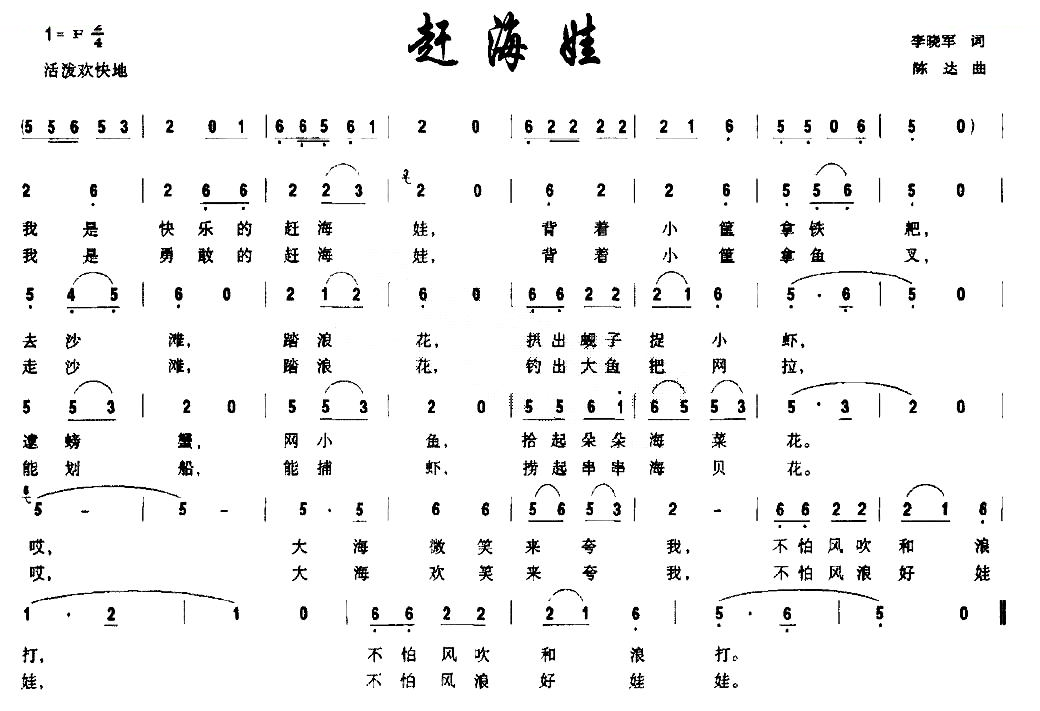 赶海娃
1=F 2/4
李晓军 词
活泼欢快地
陈达 曲
(5 5 6 5 3 | 2 0 1 | 6 6 5 6 1 | 2 0 | 6 2 2 2 2 | 2 1 6 | 5 5 0 6 | 5 0) |
2 6 | 2 6 6 | 2 2 3 | 2 0 | 6 2 | 2 6 | 5 5 6 | 5 0 |
我是快乐的赶海娃, 背着小筐拿铁耙,
我是勇敢的赶海娃, 背着小筐拿鱼叉,
5 4 5 | 6 0 | 2 1 2 | 6 0 | 6 6 2 2 | 2 1 6 | 5 · 6 | 5 0 |
去沙滩, 踏浪花, 抓出蚬子捉小虾,
走沙滩, 踏浪花, 钓出大鱼把网拉,
5 5 3 | 2 0 | 5 5 3 | 2 0 | 5 5 6 1 | 6 5 5 3 | 5 · 3 | 2 0 |
逮螃蟹, 网小鱼, 拾起朵朵海菜花。
能划船, 能捕虾, 捞起串串海贝花。
5 - | 5 - | 5 · 5 | 6 6 | 5 6 5 3 | 2 - | 6 6 2 2 | 2 1 6 |
哎, 大海微笑来夸我, 不怕风吹和浪
哎, 大海欢笑来夸我, 不怕风浪好娃
1 · 2 | 1 0 | 6 6 2 2 | 2 1 6 | 5 · 6 | 5 0 ‖
打, 不怕风吹和浪打。
娃, 不怕风浪好娃娃。